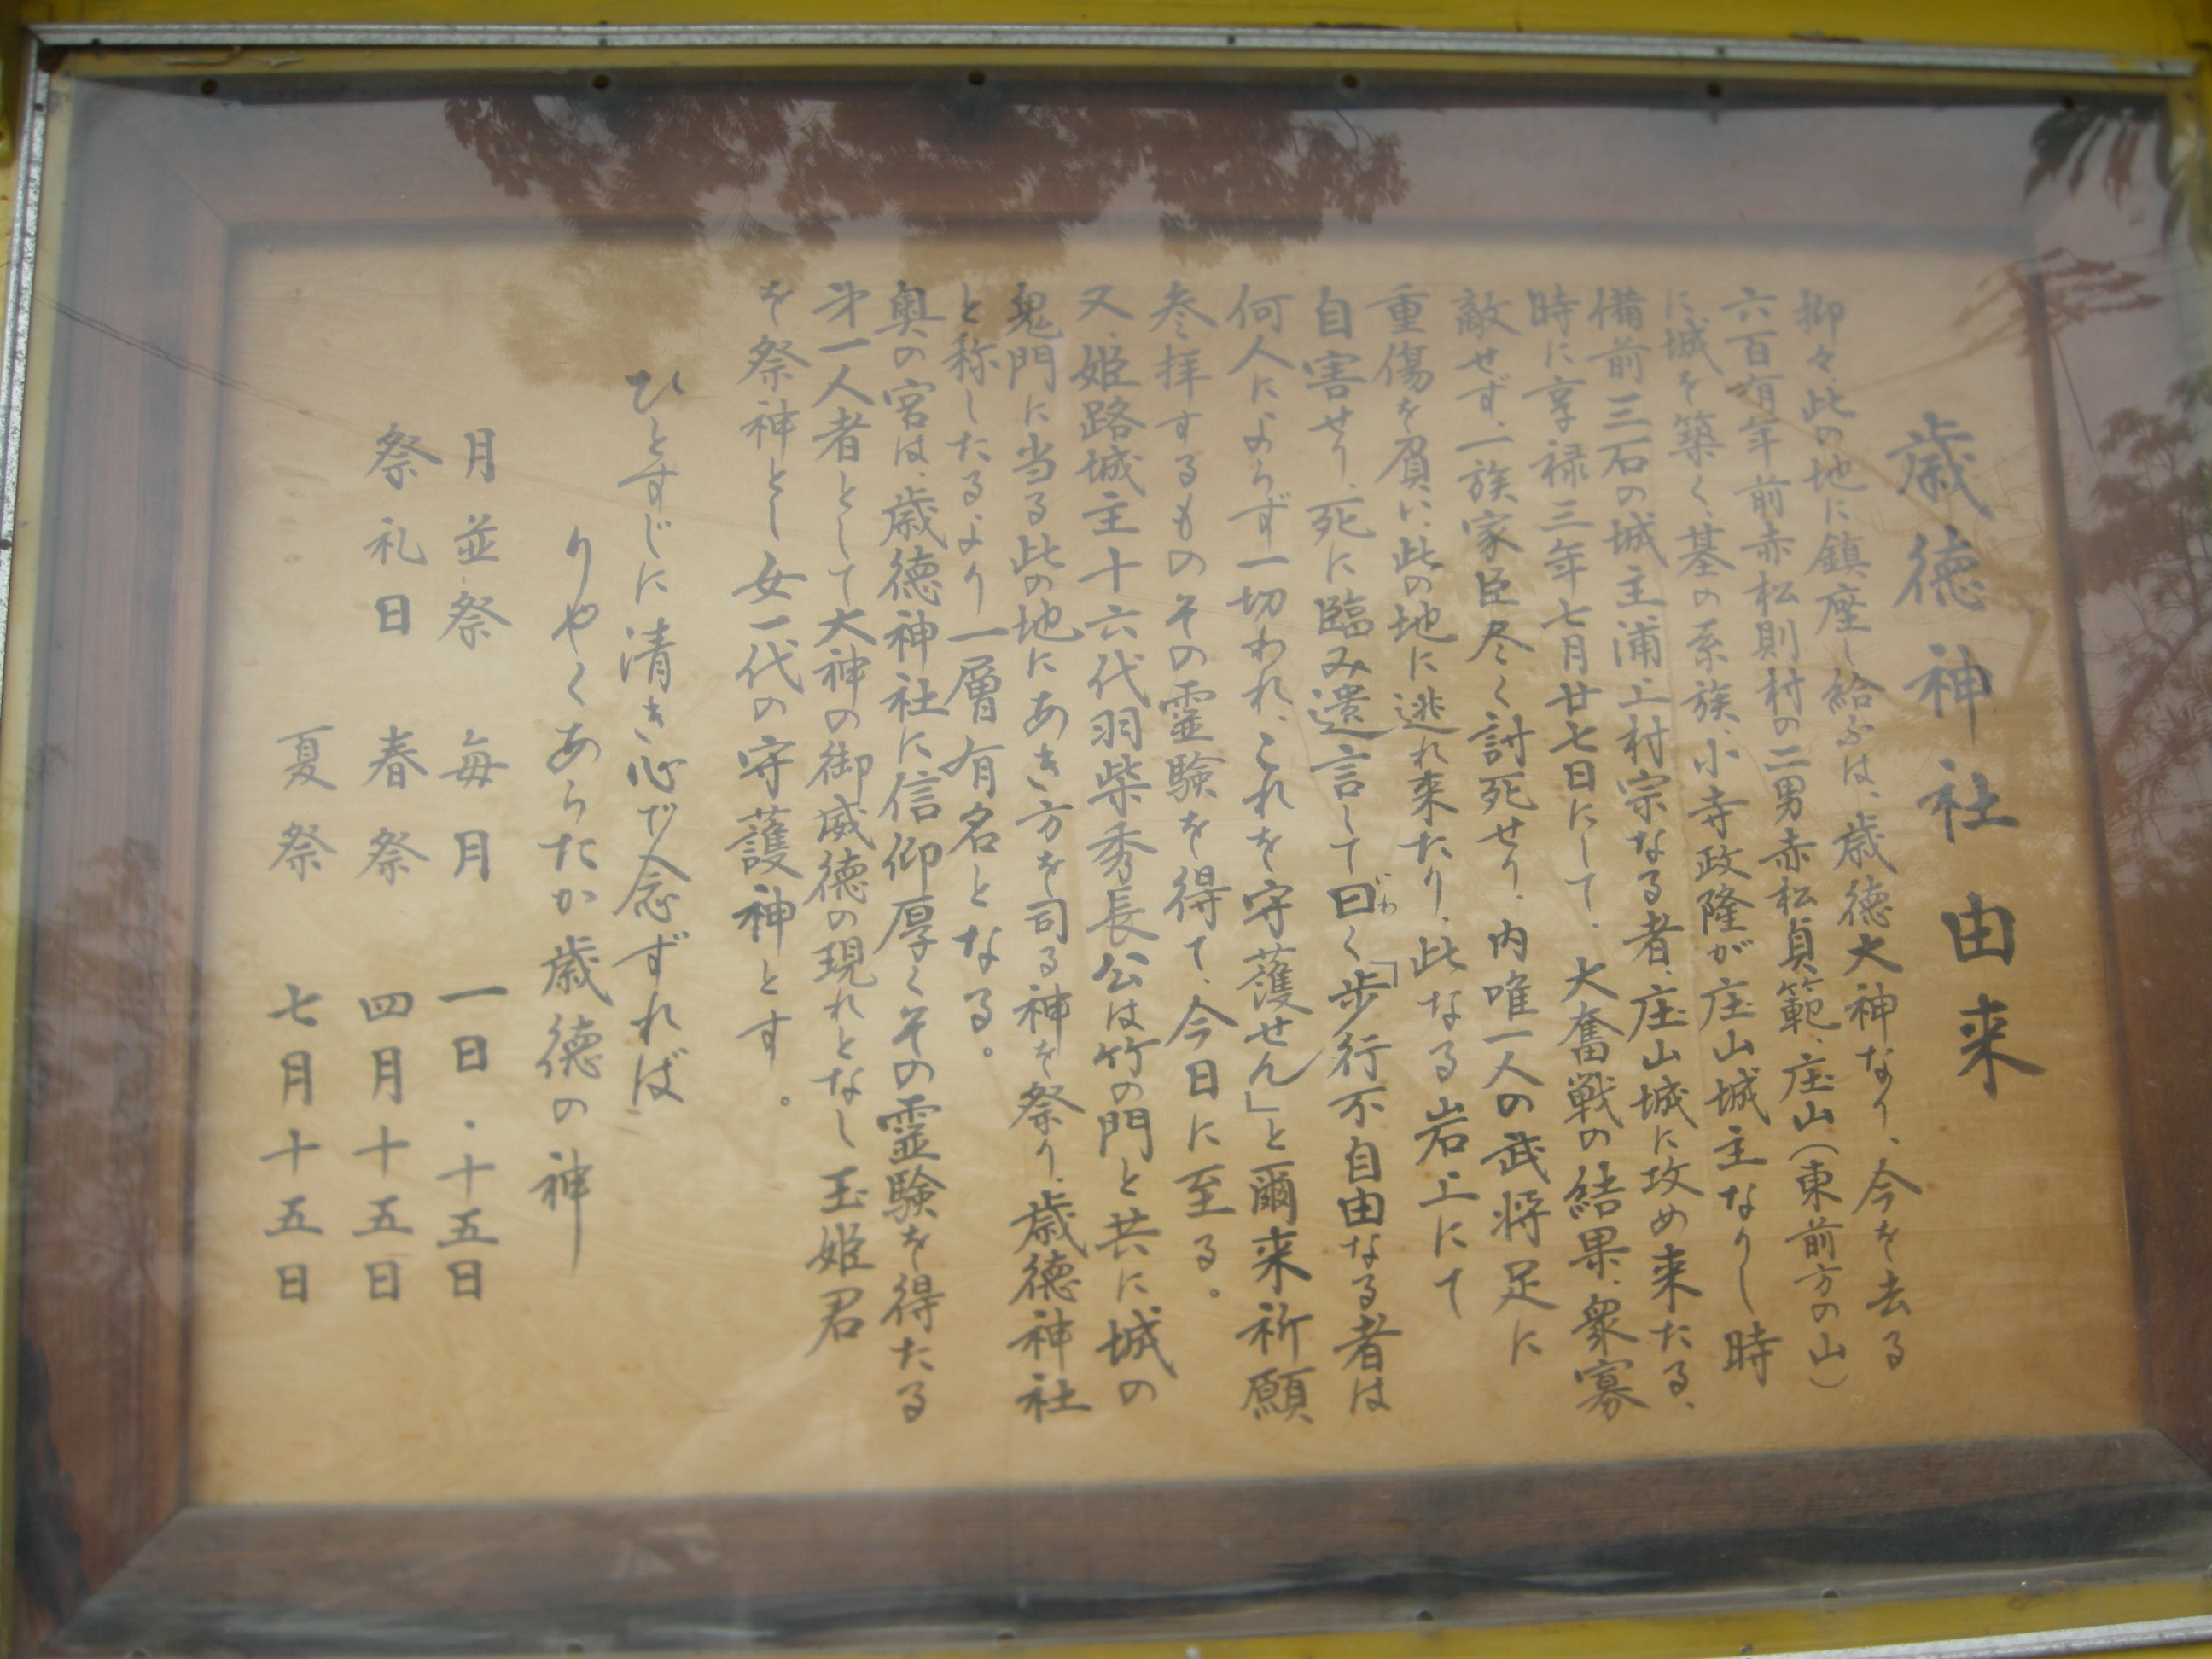 歳徳神社由来
抑々、此の地に鎮座し給ふは、歳徳大神なり、今を去る
六百有年前赤松則村の二男赤松貞範、庄山(東前方の山)
に城を築く、基の系族、小寺政隆が庄山城主なりし時
備前三石の城主浦上村宗なる者、庄山城に攻め来たる、
時に享禄三年七月廿七日にして、大奮戦の結果、衆寡
敵せず、一族家臣尽く討死せり、内唯一人の武将足に
重傷を負い、此の地に逃れ来たり、此なる岩上にて
自害せり、死に臨み遺言して曰く「歩行不自由なる者は
何人によらず一切われ、これを守護せん」と爾来祈願
参拝するものその霊験を得て、今日に至る。
又、姫路城主十六代羽柴秀長公は竹の門と共に城の
鬼門に当る此の地にあき方を司る神を祭り、歳徳神社
と称したるより一層有名となる。
奥の宮は、歳徳神社に信仰厚くその霊験を得たる
第一人者として大神の御威徳の現れとなし玉姫君
を祭神とし女一代の守護神とす。
ひとすじに清き心で念ずれば
りやくあらたか歳徳の神
月並祭 毎月 一日・十五日
祭礼日 春祭 四月十五日
夏祭 七月十五日